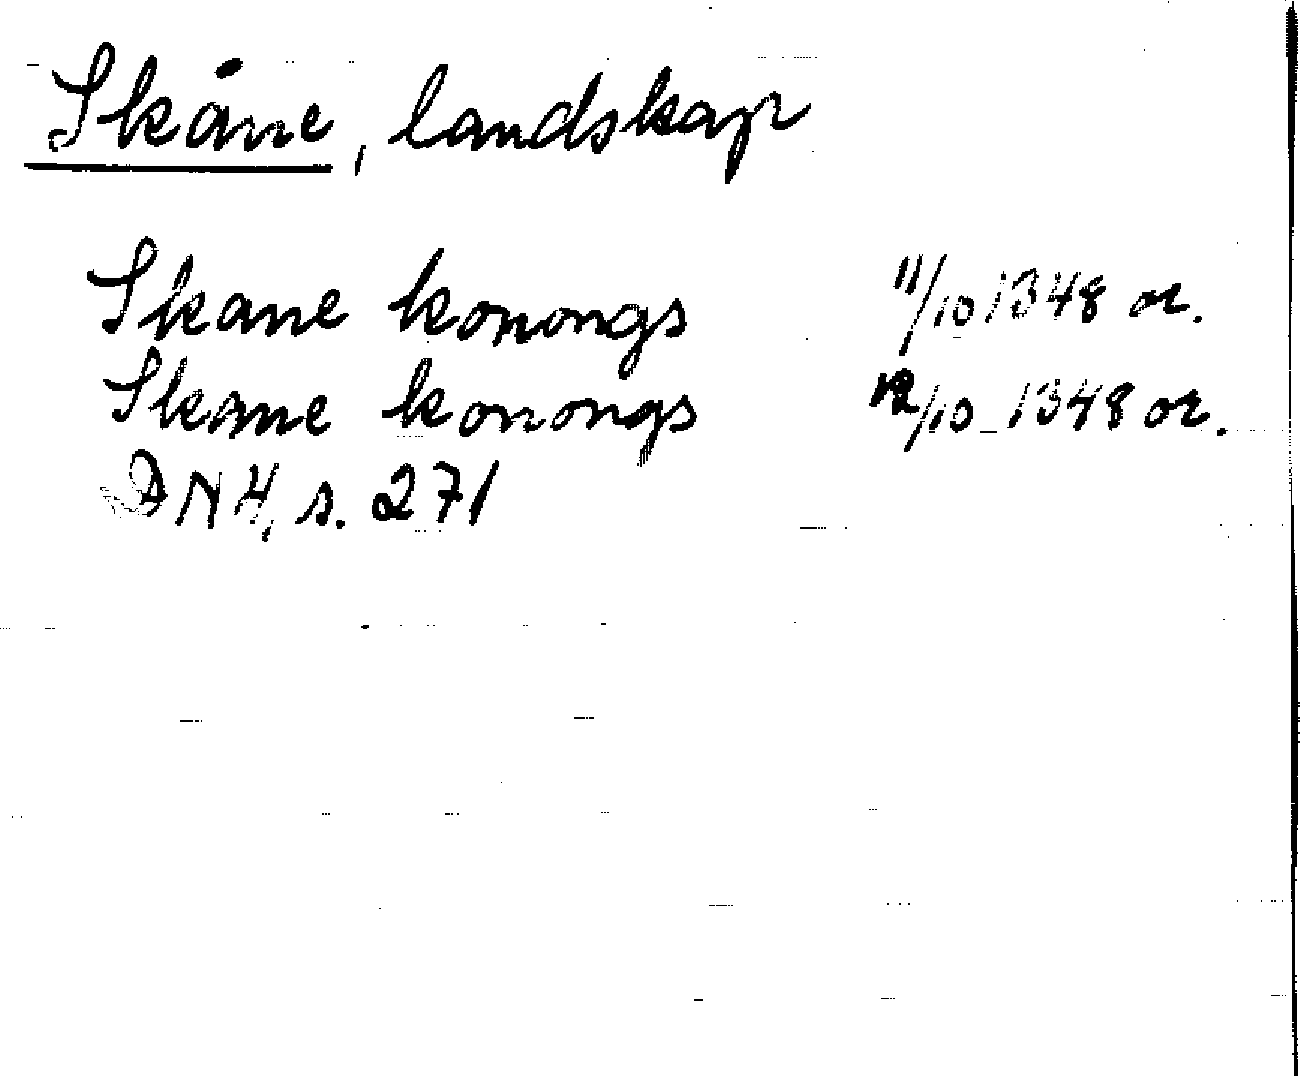 Skåne, landskap
Skane konongs 11/10 1348 or.
Skane konongs 12/10 1348 or.
DN 4, s. 271